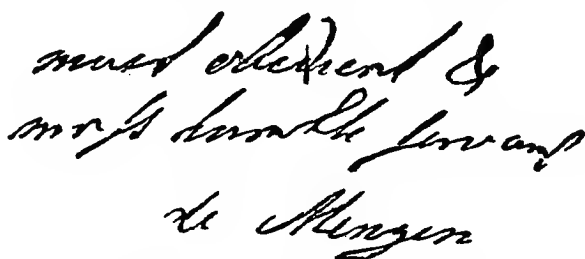 most obedient &
most humble servant
de Menzen